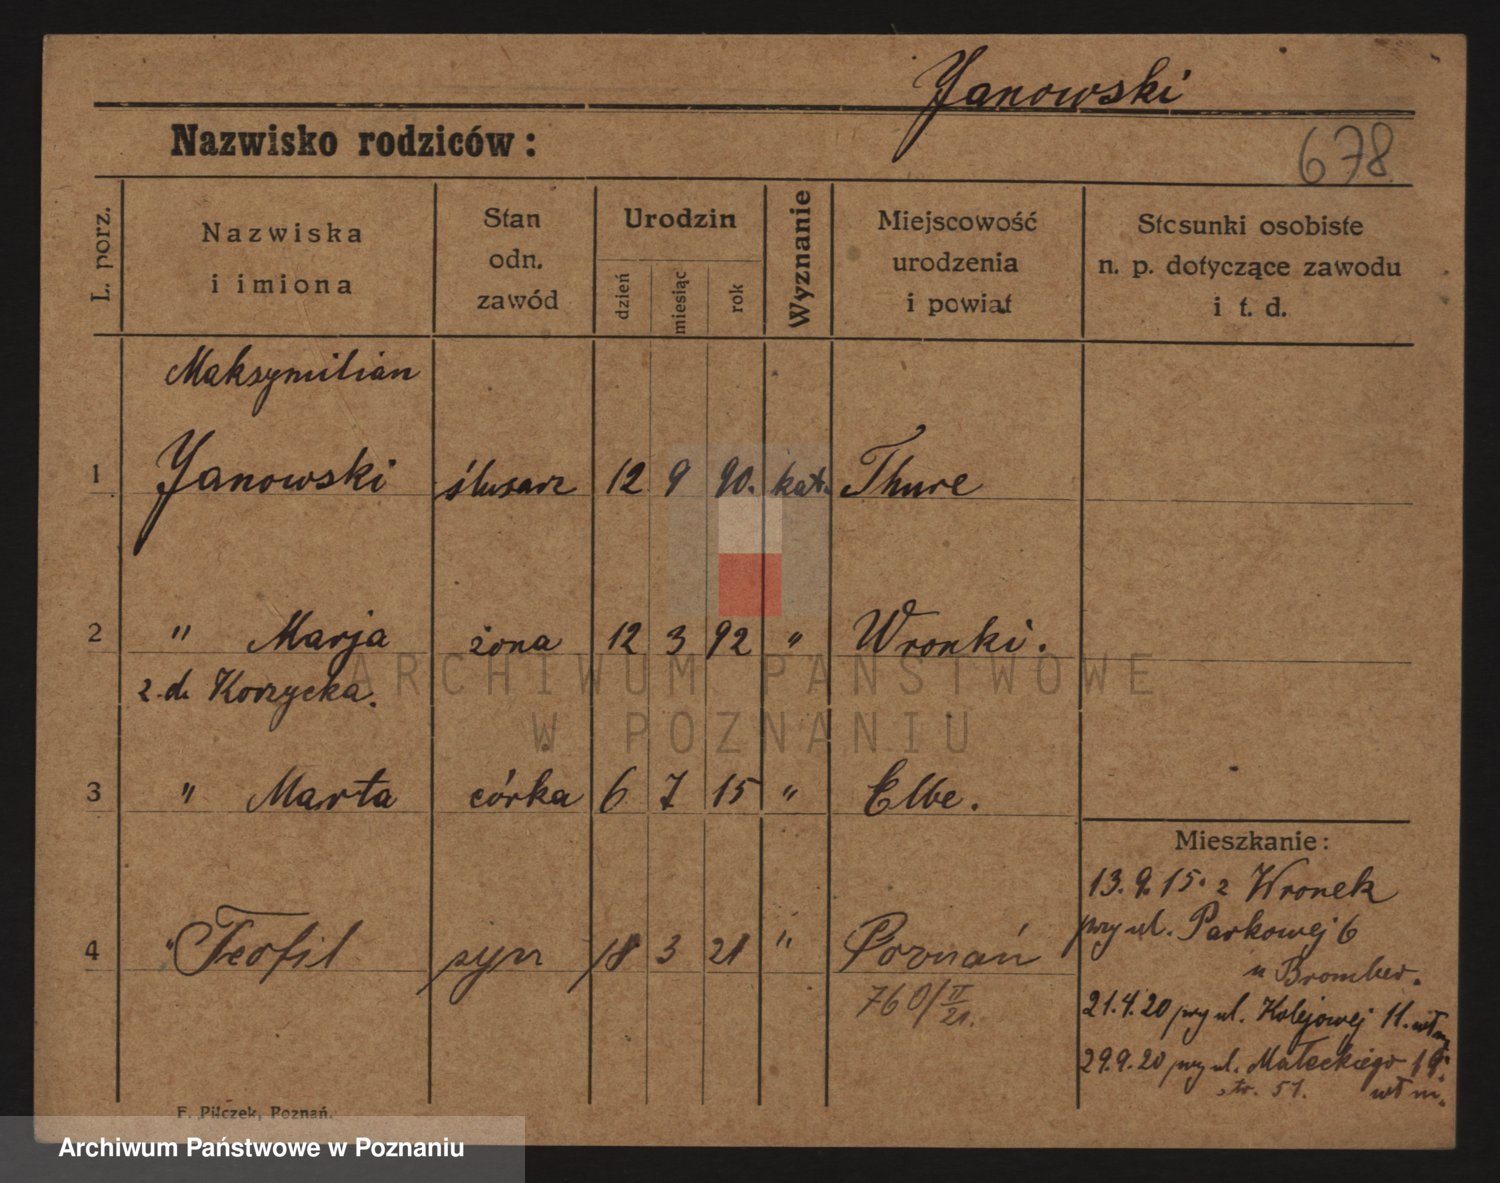 Janowski
Nazwisko rodziców:
678
L. porz.
Nazwiska
i imiona
Stan
odn.
zawód
Urodzin
dzień
miesiąc
rok
Wyznanie
Miejscowość
urodzenia
i powiat
Stosunki osobiste
n. p. dotyczące zawodu
i t. d.
Maksymilian
1 Janowski ślusarz 12 9 90. kat. Thure
2 " Marja żona 12 3 92 " Wronki.
z d. Korzycka.
3 " Marta córka 6 7 15 " Elbe.
Mieszkanie:
13.9.15. z Wronek
przy ul. Parkowej 6
u Bromber.
4 " Teofil syn 18 3 21 " Poznań
760/II 21.
21.4.20 przy ul. Kolejowej 11. wł m
29.9.20 przy ul. Małeckiego 19.
str. 51. wł m.
F. Pilczek, Poznań.
ARCHIWUM PAŃSTWOWE
W POZNANIU
Archiwum Państwowe w Poznaniu